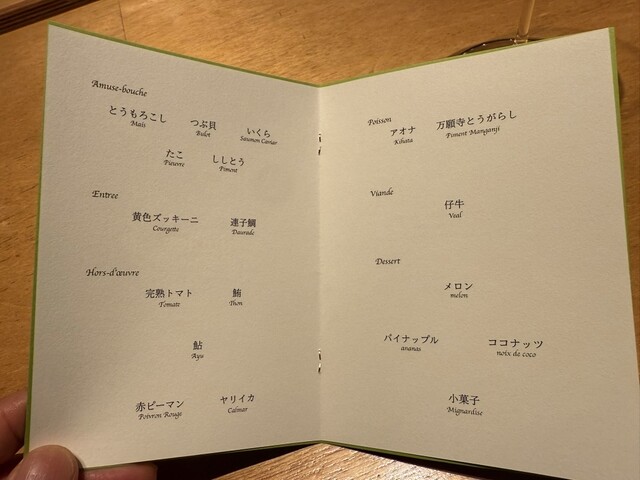 Amuse-bouche
とうもろこし
Maïs
つぶ貝
Bulot
いくら
Saumon Caviar
たこ
Pieuvre
ししとう
Piment
Entree
黄色ズッキーニ
Courgette
連子鯛
Daurade
Hors-d'œuvre
完熟トマト
Tomate
鮪
Thon
鮎
Ayu
赤ピーマン
Poivron Rouge
ヤリイカ
Calmar
Poisson
アオナ
Kihata
万願寺とうがらし
Piment Manganji
Viande
仔牛
Veal
Dessert
メロン
melon
パイナップル
ananas
ココナッツ
noix de coco
小菓子
Mignardise